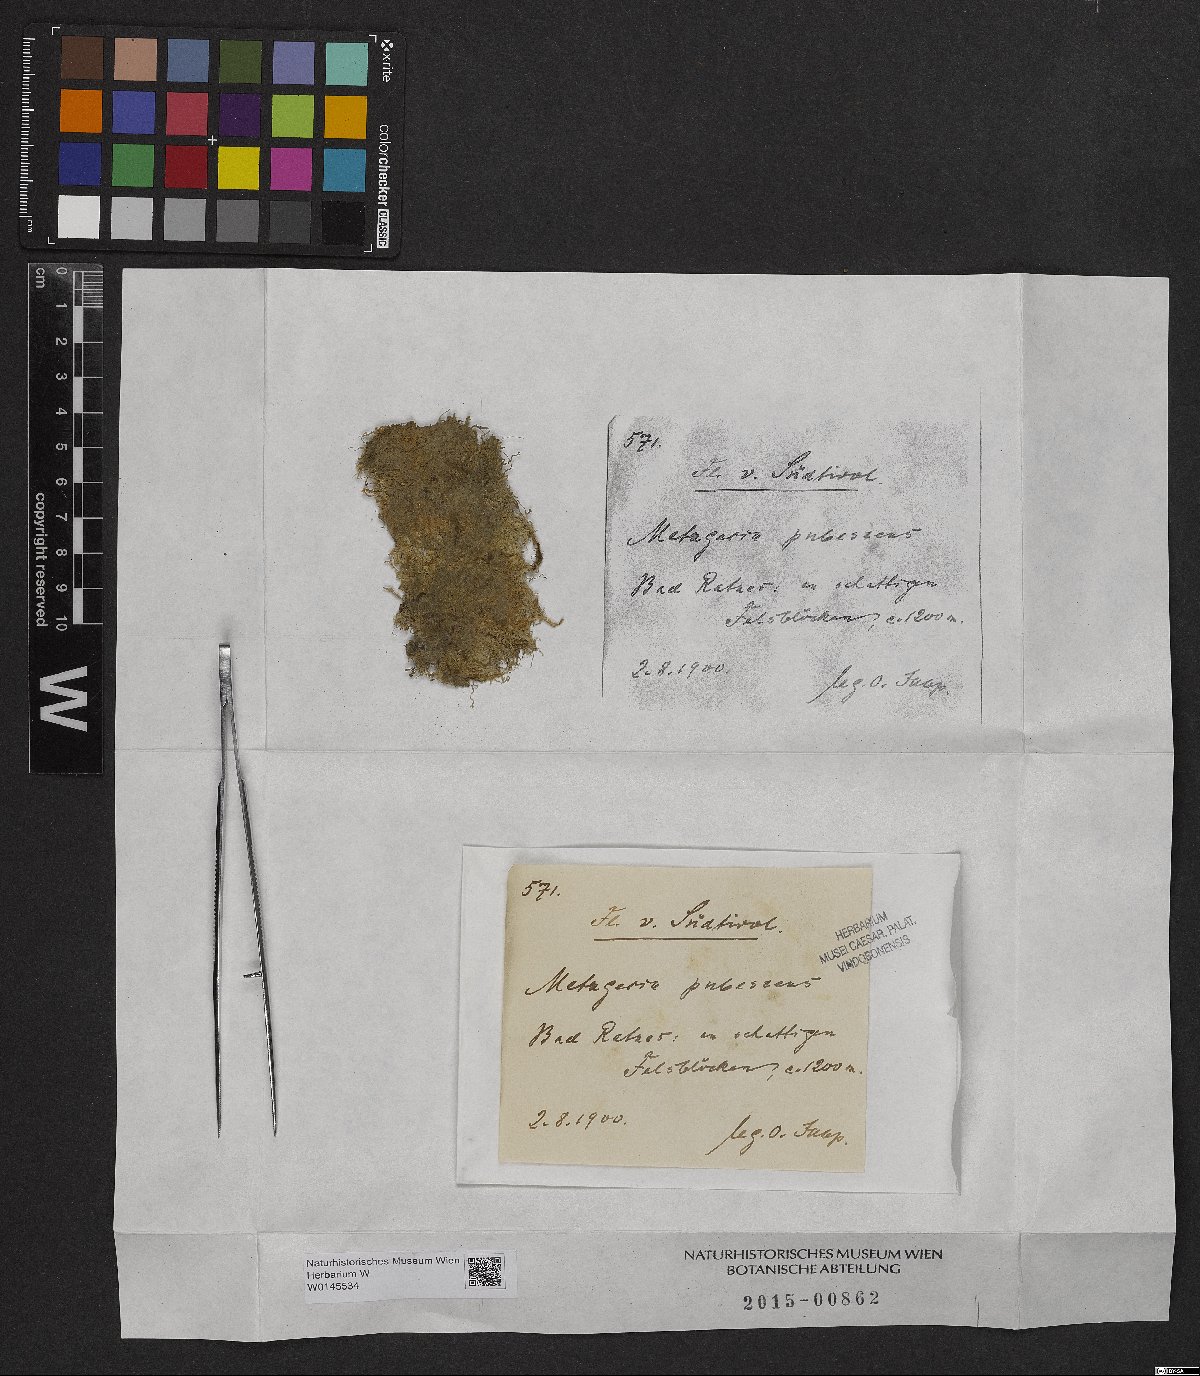 x-rite
colorchecker CLASSIC
cm
0 1 2 3 4 5 6 7 8 9 10
copyright reserved
W
571.
Fl. v. Südtirol.
Metzgeria pubescens
Bad Ratzes: an schattigen
Felsblöcken, c. 1200 m.
2.8.1900.
leg. O. Jaap.
571.
Fl. v. Südtirol.
Metzgeria pubescens
Bad Ratzes: an schattigen
Felsblöcken, c. 1200 m.
2.8.1900.
leg. O. Jaap.
HERBARIUM
MUSEI CAESAR. PALAT.
VINDOBONENSIS
Naturhistorisches Museum Wien
Herbarium W
W0145534
NATURHISTORISCHES MUSEUM WIEN
BOTANISCHE ABTEILUNG
2015-00862